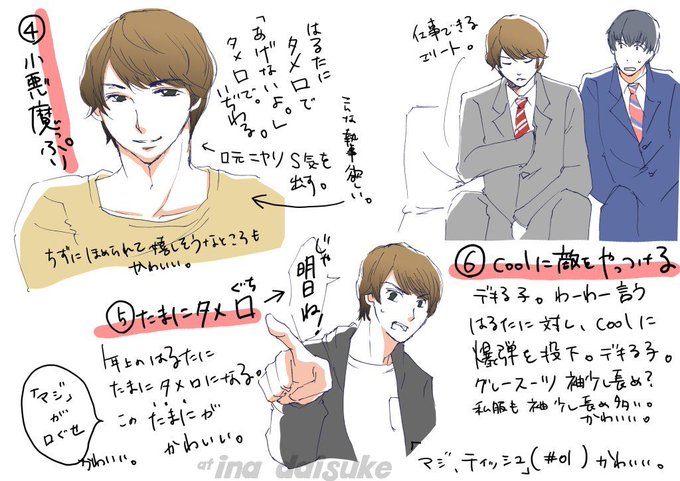 ④小悪魔っぷり。
はるたに
タメ口で
「あげないよ。」
タメ口で。
いぢわる。
←口元ニヤリ S気を
出す。
こんな執事欲しい。
ちずにほめられて嬉しそうなところも
かわいい。
仕事できる
エリート。
⑤たまにタメ口
ぐち
1年上のはるたに
たまにタメ口になる。
この たまにが
かわいい。
「マジ」
が
口ぐせ
かわいい。
じゃ
明日ね!
⑥coolに敵をやっつける
デキる子。わーわー言う
はるたに対し、coolに
爆弾を投下。デキる子。
グレースーツ 袖少し長め?
私服も袖少し長め多い。
かわいい。
マジ、ティッシュ」(#01) かわいい。
at ina daisuke